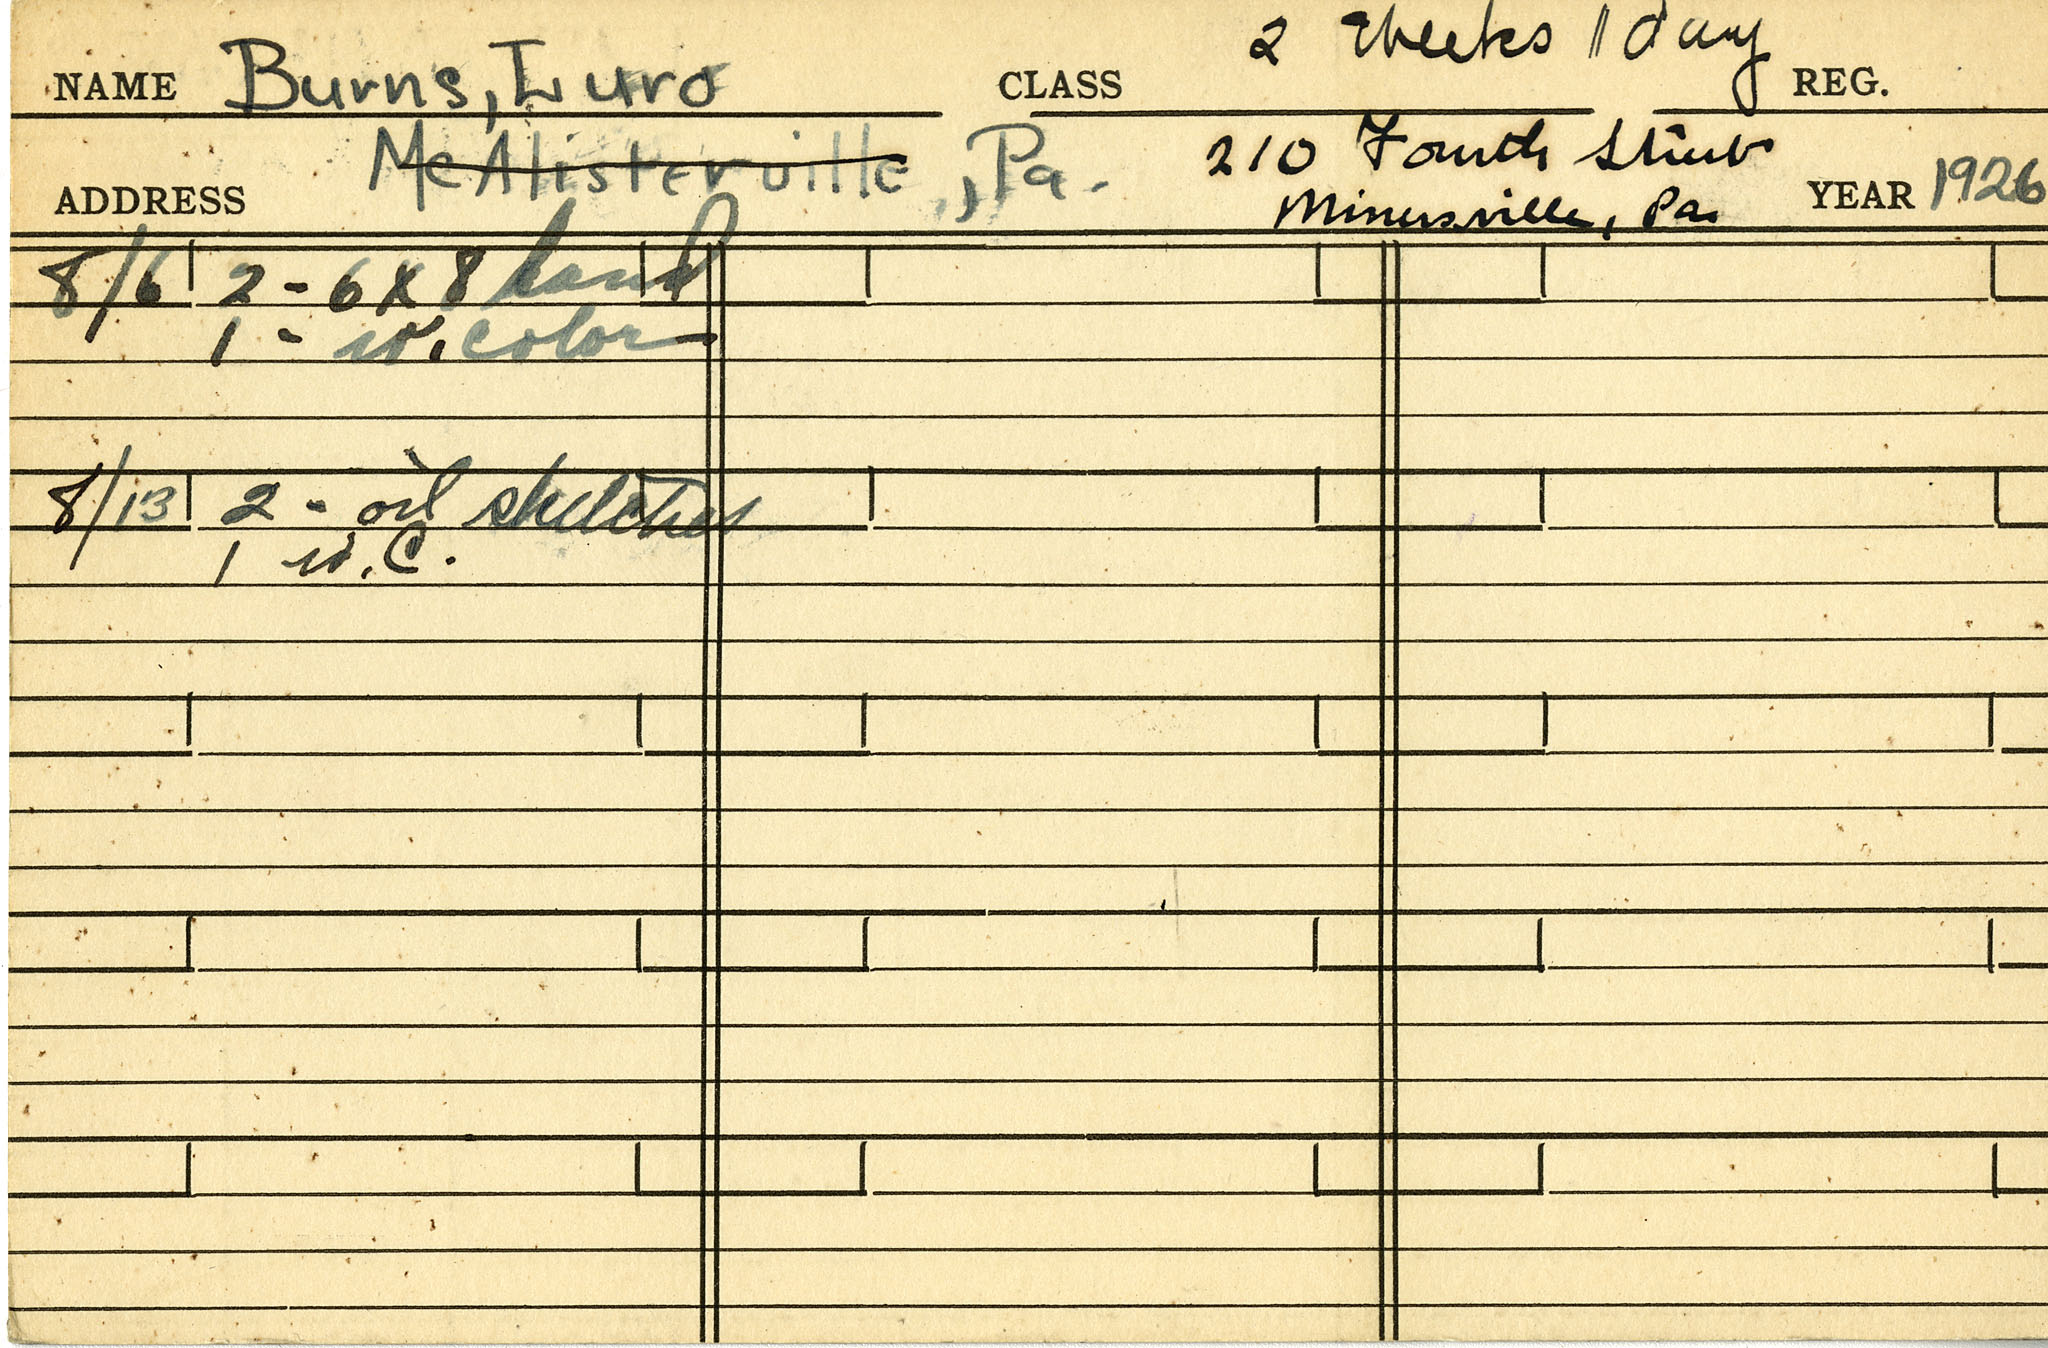 NAME Burns, Luro CLASS 2 Weeks 1 day REG.
ADDRESS McAlisterville, Pa. 210 Fourth Street
Minersville, Pa. YEAR 1926
8/6 2 - 6 x 8 land
1 - w. color
8/13 2 - oil sketches
1 w. C.